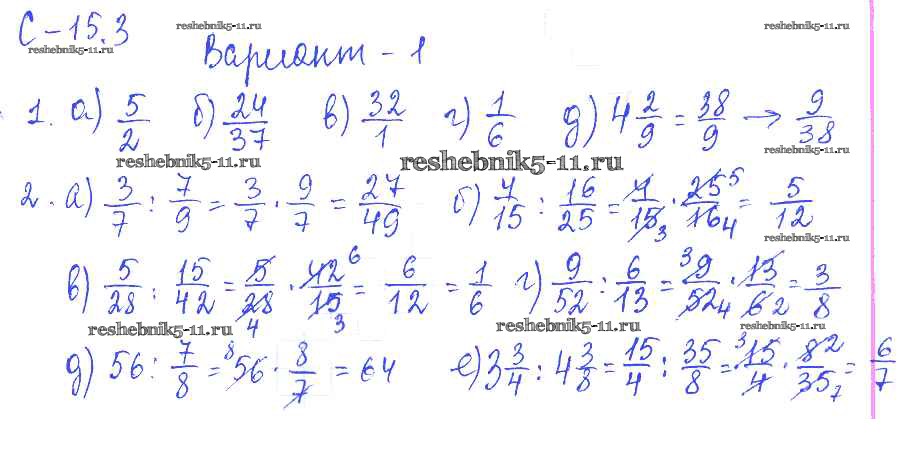 С-15.3 reshebnik5-11.ru reshebnik5-11.ru reshebnik5-11.ru
Вариант - 1
1. а) 5/2 б) 24/37 в) 32/1 г) 1/6 д) 4 2/9 = 38/9 → 9/38
reshebnik5-11.ru reshebnik5-11.ru reshebnik5-11.ru
2. а) 3/7 : 7/9 = 3/7 · 9/7 = 27/49 б) 4/15 : 16/25 = 4/15 3 · 25 5/16 4 = 5/12
reshebnik5-11.ru
в) 5/28 : 15/42 = 5/28 4 · 42 6/15 3 = 6/12 = 1/6 г) 9/52 : 6/13 = 3 9/52 4 · 13/6 2 = 3/8
reshebnik5-11.ru reshebnik5-11.ru reshebnik5-11.ru
д) 56 : 7/8 = 8 56 · 8/7 = 64 е) 3 3/4 : 4 3/8 = 15/4 : 35/8 = 3 15/4 · 8 2/35 7 = 6/7